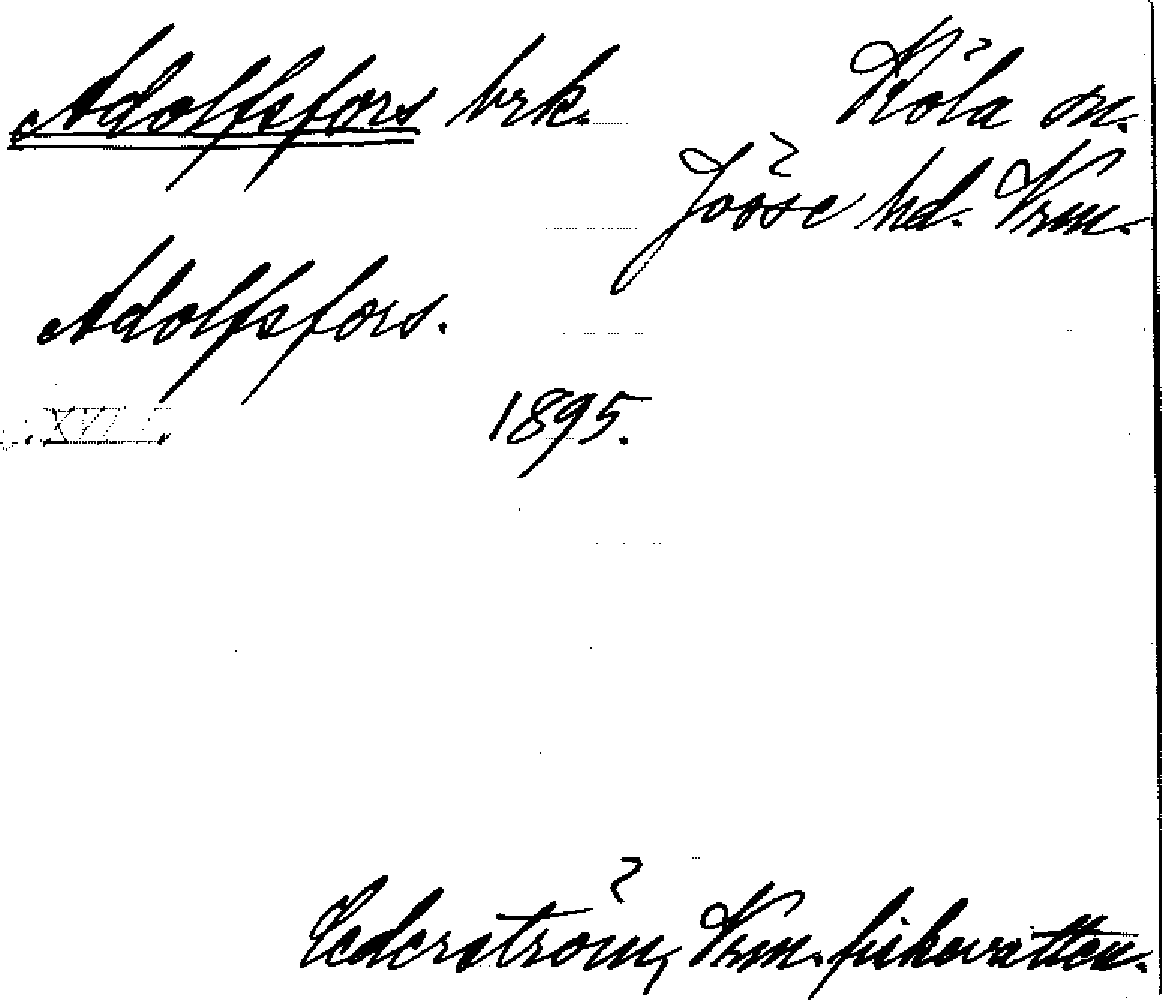 Adolfsfors brk.
Köla sn.
Jösse hd. Vrm.
Adolfsfors.
XVI
1895.
Cederström, Vrm. fiskevatten.